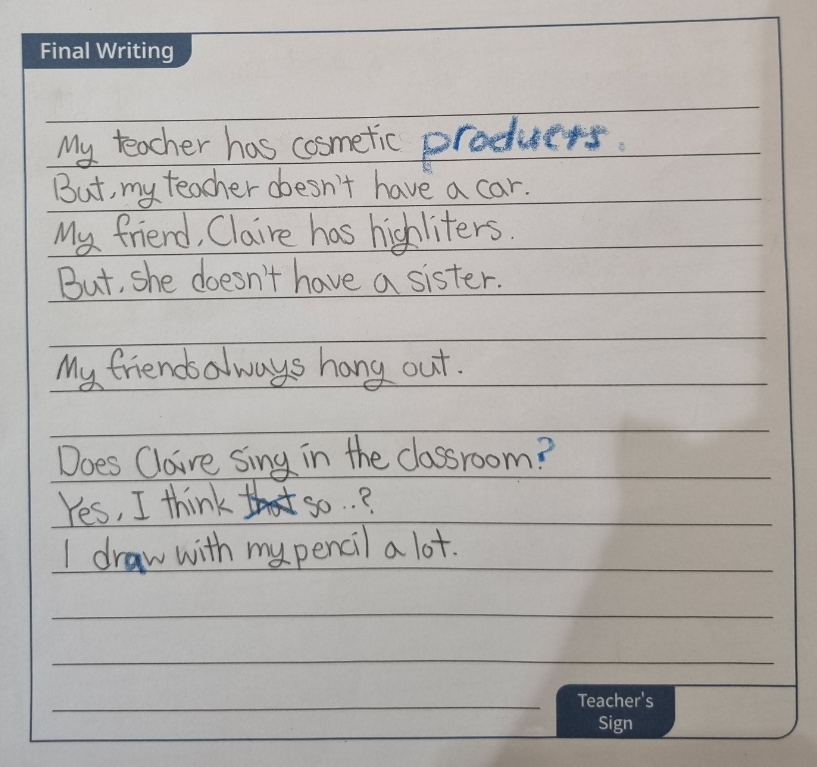 Final Writing
My teacher has cosmetic products.
But, my teacher doesn't have a car.
My friend, Claire has highliters.
But, she doesn't have a sister.
My friends always hang out.
Does Claire sing in the classroom?
Yes, I think that so ..?
I draw with my pencil a lot.
Teacher's
Sign